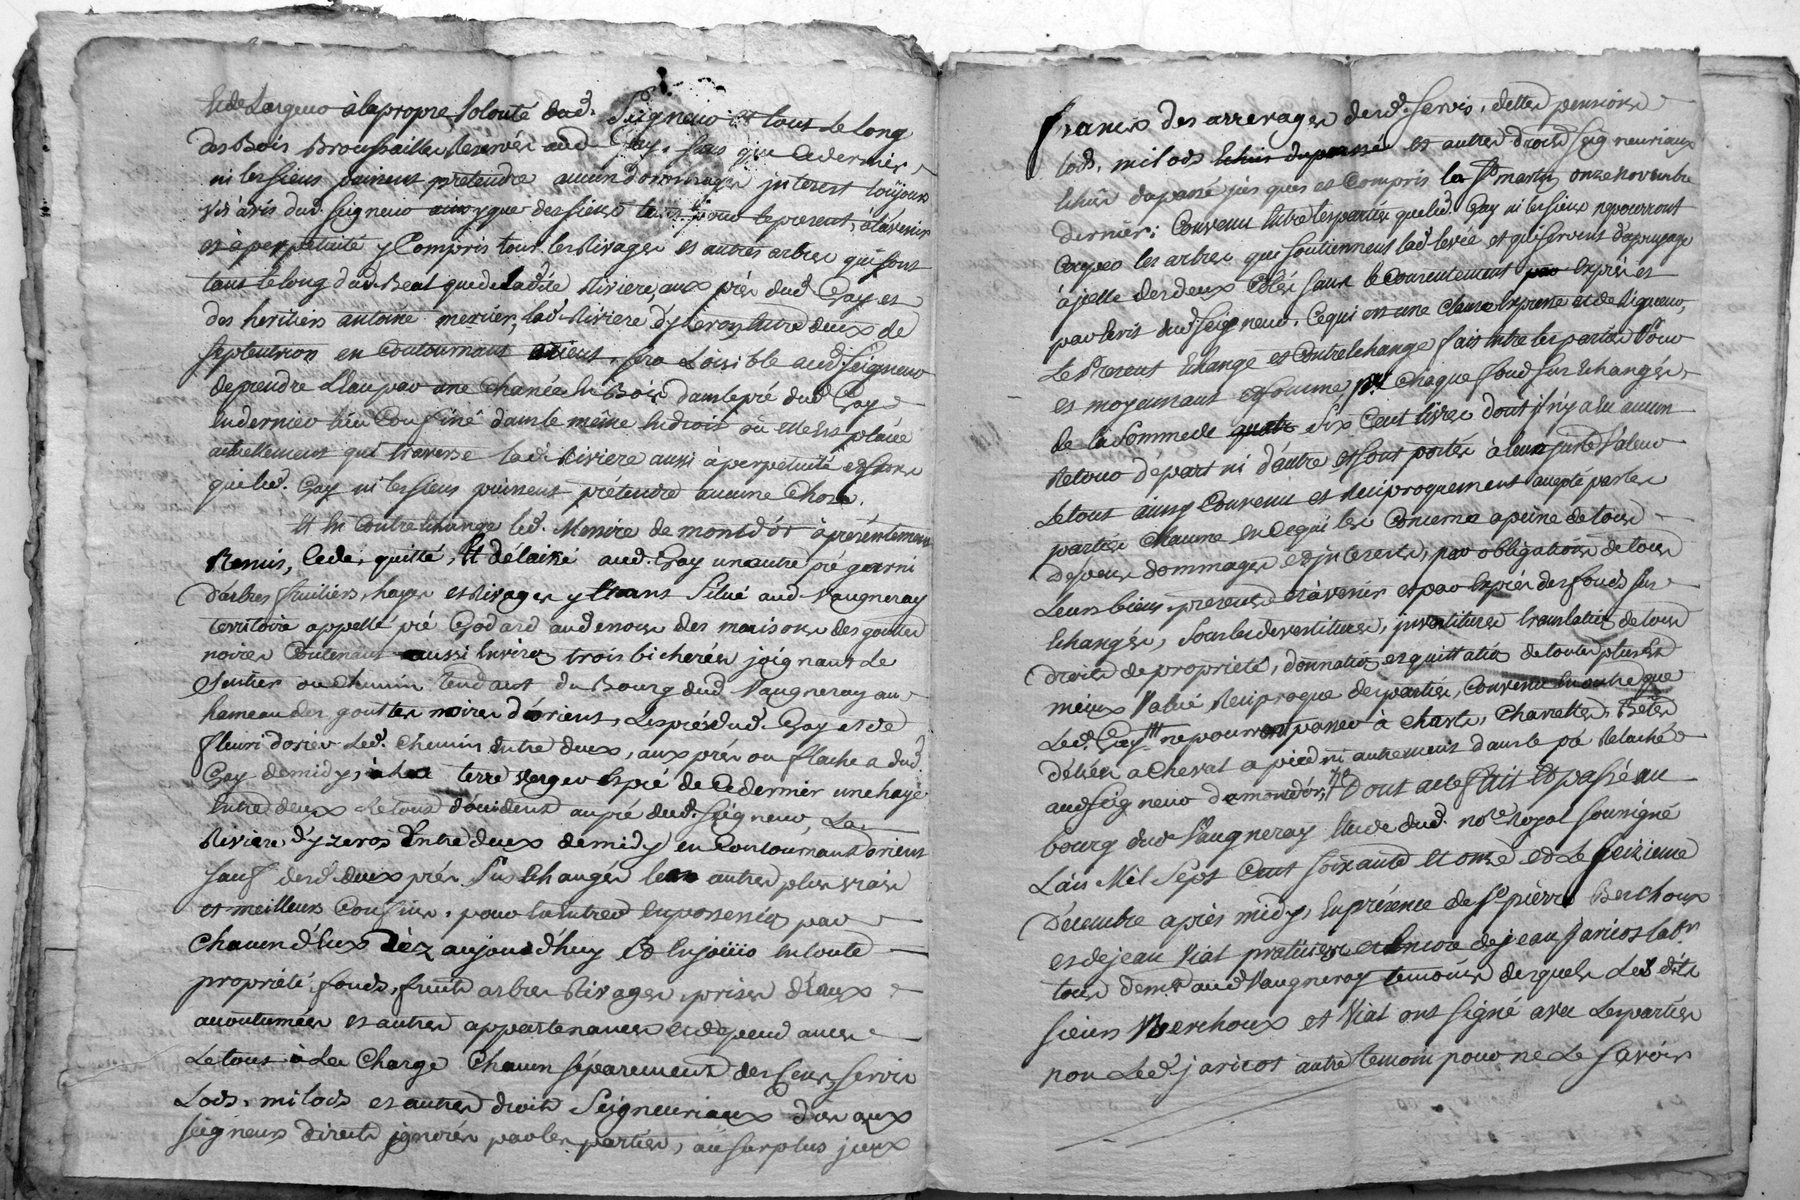 et de Largeur à la propre volonté dud. Seigneur et tout le long
des Bois Broussailles Reservés aud Gay, sans que Ce dernier
ni les siens puissent pretendre aucun dommages interest toujours
vis avis dud. Seigneur que des siens pour le present, à l'avenir
et à perpetuité y Compris tour les Rivages et autres arbres qui sont
tant le long dud. Beal que de Ladite Riviere, aux prés dud Gay et
des heritiers antoine mercier, lad. Riviere d'yzeron Entre deux de
septentrion en Contournant orient, sera Loisible aud. Seigneur
de prendre L'Eau par une Chanée En Bois dans le pré dud Gay
En dernier lieu Confiné dans le même Endroit où elle Est placée
actuellement qui traverse lad. Riviere aussi à perpetuité et sans
que led. Gay ni les siens puissent pretendre aucune Chose.
Et En Contre Echange led. Messire de montd'or à présentement
Remis, Cedé, quitté, Et délaissé aud. Gay un autre pré garni
D'arbres fruitiers, hayes et Rivages y Etrans Situé aud. Vaugneray
territoire appellé pré Godard au dessous des maisons des gouttes
noires Contenant aussi Environ trois bicherées joignant Le
Sentier ou Chemin tendant du Bourg dud. Vaugneray au
hameau des gouttes noires d'orient, Les prés dud. Gay et de
fleuri dorieu Led. Chemin Entre deux, aux prés ou flache a dud.
Gay de midy, à la terre verger Et pré de Ce dernier une haye
Entre deux Et tout d'occident au pré dud. Seigneur, La
Riviere d'yzeron Entre deux de midy en Contournant orient
sauf desd. deux prés Sus Echangés leurs autres plus vrais
et meilleurs Confins, pour En Entrer En possession par
Chacun d'Eux Dèz aujourd'huy Et En jouir En toute
propriété, fonds, fruits arbres Rivages, prises d'Eaux
accoutumées et autres appartenances et dependances
Le tout à La Charge Chacun séparement des Cens, servis
Lods, milods et autres droits Seigneuriaux dus aux
Seigneurs directs ignorés par les parties, au surplus jceux
francs des arrerages desd. servis, dettes pensions
lods, milods et autres droits Seigneuriaux
Echus du passé jusques et Compris la St martin onze novembre
dernier: Convenu Entre les parties que led. Gay ni les siens ne pourront
Couper les arbres qui soutiennent lad. levée et qui servent d'apuyage
à jcelle des deux Côtés sans le Consentement Exprès et
par Ecrit dud. Seigneur. Ce qui est une Clause Expresse et de Rigueur,
Le Present Echange et Contrechange fait Entre les parties Pour
et moyennant Chaque fond sus Echangés
de la Somme de six Cent livres dont il n'y a Eu aucun
Retour de part ni d'autre et sont portés à leur juste Valeur
Le tout ainsy Convenu et Reciproquement accepté par les
parties Chacune En Ce qui les Concerne a peine de tous
Depens dommages et interests, par obligations de tous
Leurs biens presents et à venir et par Exprès des fonds sus
Echangés, sous les devestitures, investitures translations de tous
droits de proprieté, donnation et quittation de toutes plus et
mieux Valué, Reciproque des parties, Convenu En outre que
Led. Gay ne pourront passer à Chars, Charettes, Betes
Deliés a Cheval a pied ni autrement dans le pré Relaché
aud Seigneur de montd'or, Dont acte fait Et passé au
bourg dud. Vaugneray Etude dud. no.re Royal soussigné
L'an Mil Sept Cent soixante Et onze et Le Seizieme
Decembre après midy, En présence de Sr. pierre Berchoux
et de jean Viat praticiens et Encore de jean jaricot lab.r
tous dem.t aud Vaugneray temoins desquels Led. dits
sieurs Berchoux et Viat ont signé avec Les parties
non Led. jaricot autre temoin pour ne Le savoir